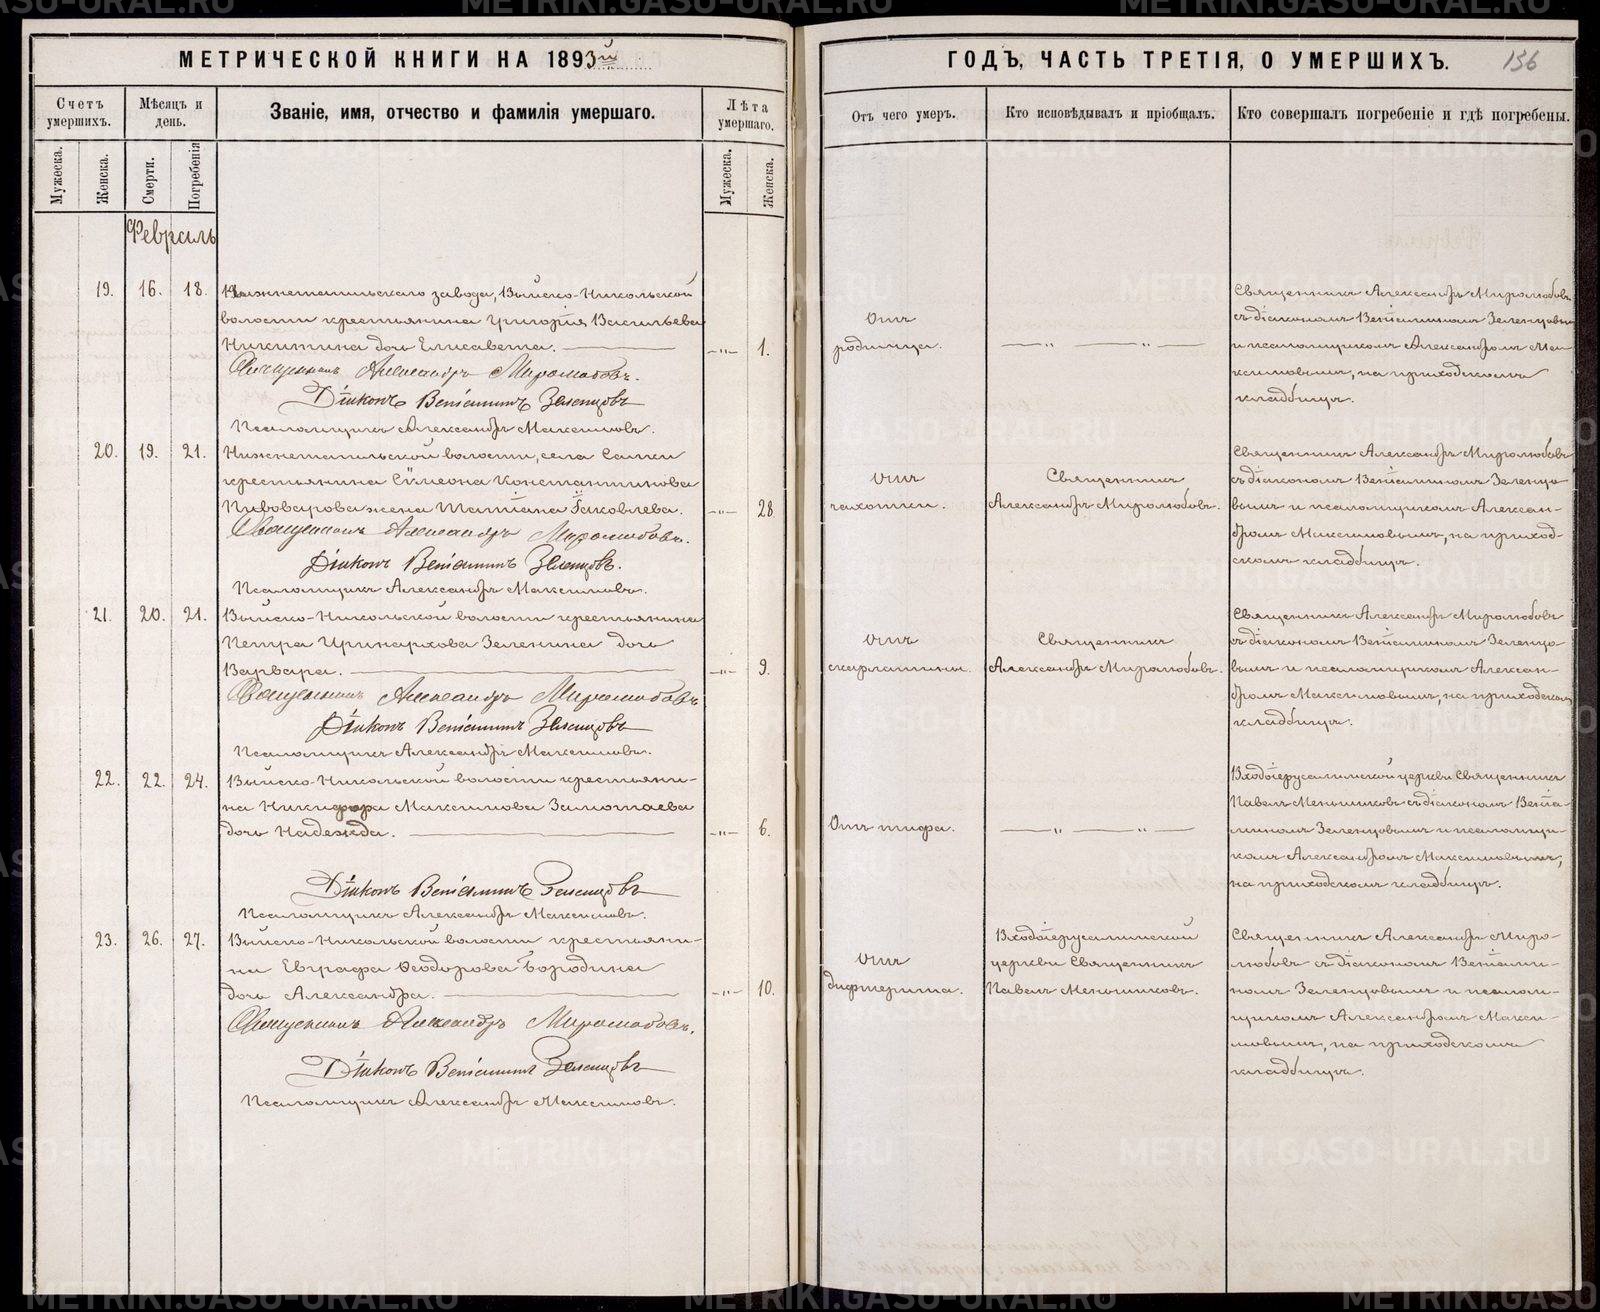 МЕТРИЧЕСКОЙ КНИГИ НА 1893й
ГОДЪ, ЧАСТЬ ТРЕТІЯ, О УМЕРШИХЪ.
156
Счетъ умершихъ.
Мѣсяцъ и день.
Званіе, имя, отчество и фамилія умершаго.
Лѣта умершаго.
Отъ чего умеръ.
Кто исповѣдывалъ и пріобщалъ.
Кто совершалъ погребеніе и гдѣ погребены.
Мужеска.
Женска.
Смерти.
Погребенія
Мужеска.
Женска.
Февраль
19. 16. 18.
Нижнетагильскаго завода, Выйско-Никольской
волости крестьянина Григорія Васильева
Никитина дочь Елисавета.
-„- 1.
Священникъ Александръ Миролюбовъ.
Діаконъ Веніаминъ Зеленцовъ
Псаломщикъ Александръ Максимовъ.
Отъ
родимца.
— „ — „ —
Священникъ Александръ Миролюбовъ
съ діакономъ Веніаминомъ Зеленцовымъ
и псаломщикомъ Александромъ Мак-
симовымъ, на приходскомъ
кладбищѣ.
20. 19. 21.
Нижнетагильской волости, села
крестьянина Сѵмеона Константинова
Пивоварова жена Татіана Іаковлева.
-„- 28.
Священникъ Александръ Миролюбовъ.
Діаконъ Веніаминъ Зеленцовъ.
Псаломщикъ Александръ Максимовъ.
Отъ
чахотки.
Священникъ
Александръ Миролюбовъ.
Священникъ Александръ Миролюбовъ
съ діакономъ Веніаминомъ Зеленцо-
вымъ и псаломщикомъ Алексан-
дромъ Максимовымъ, на приход-
скомъ кладбищѣ.
21. 20. 21.
Выйско-Никольской волости крестьянина
Петра Иринархова Зеленина дочь
Варвара.
-„- 9.
Священникъ Александръ Миролюбовъ
Діаконъ Веніаминъ Зеленцовъ
Псаломщикъ Александръ Максимовъ.
Отъ
скарлатины.
Священникъ
Александръ Миролюбовъ.
Священникъ Александръ Миролюбовъ
съ діакономъ Веніаминомъ Зеленцо-
вымъ и псаломщикомъ Алексан-
дромъ Максимовымъ, на приходскомъ
кладбищѣ.
22. 22. 24.
Выйско-Никольской волости крестьяни-
на Никифора Максимова Залотаева
дочь Надежда.
-„- 6.
Діаконъ Веніаминъ Зеленцовъ
Псаломщикъ Александръ Максимовъ.
Отъ тифа.
— „ — „ —
Входоіерусалимской церкви Священникъ
Павелъ Меньшиковъ съ діакономъ Веніа-
миномъ Зеленцовымъ и псаломщи-
комъ Александромъ Максимовымъ,
на приходскомъ кладбищѣ.
23. 26. 27.
Выйско-Никольской волости крестьяни-
на Евграфа Ѳеодорова Бородина
дочь Александра.
-„- 10.
Священникъ Александръ Миролюбовъ.
Діаконъ Веніаминъ Зеленцовъ
Псаломщикъ Александръ Максимовъ.
Отъ
дифтерита.
Входоіерусалимской
церкви Священникъ
Павелъ Меньшиковъ.
Священникъ Александръ Миро-
любовъ съ діакономъ Веніами-
номъ Зеленцовымъ и псалом-
щикомъ Александромъ Макси-
мовымъ, на приходскомъ
кладбищѣ.
METRIKI.GASO-URAL.RU